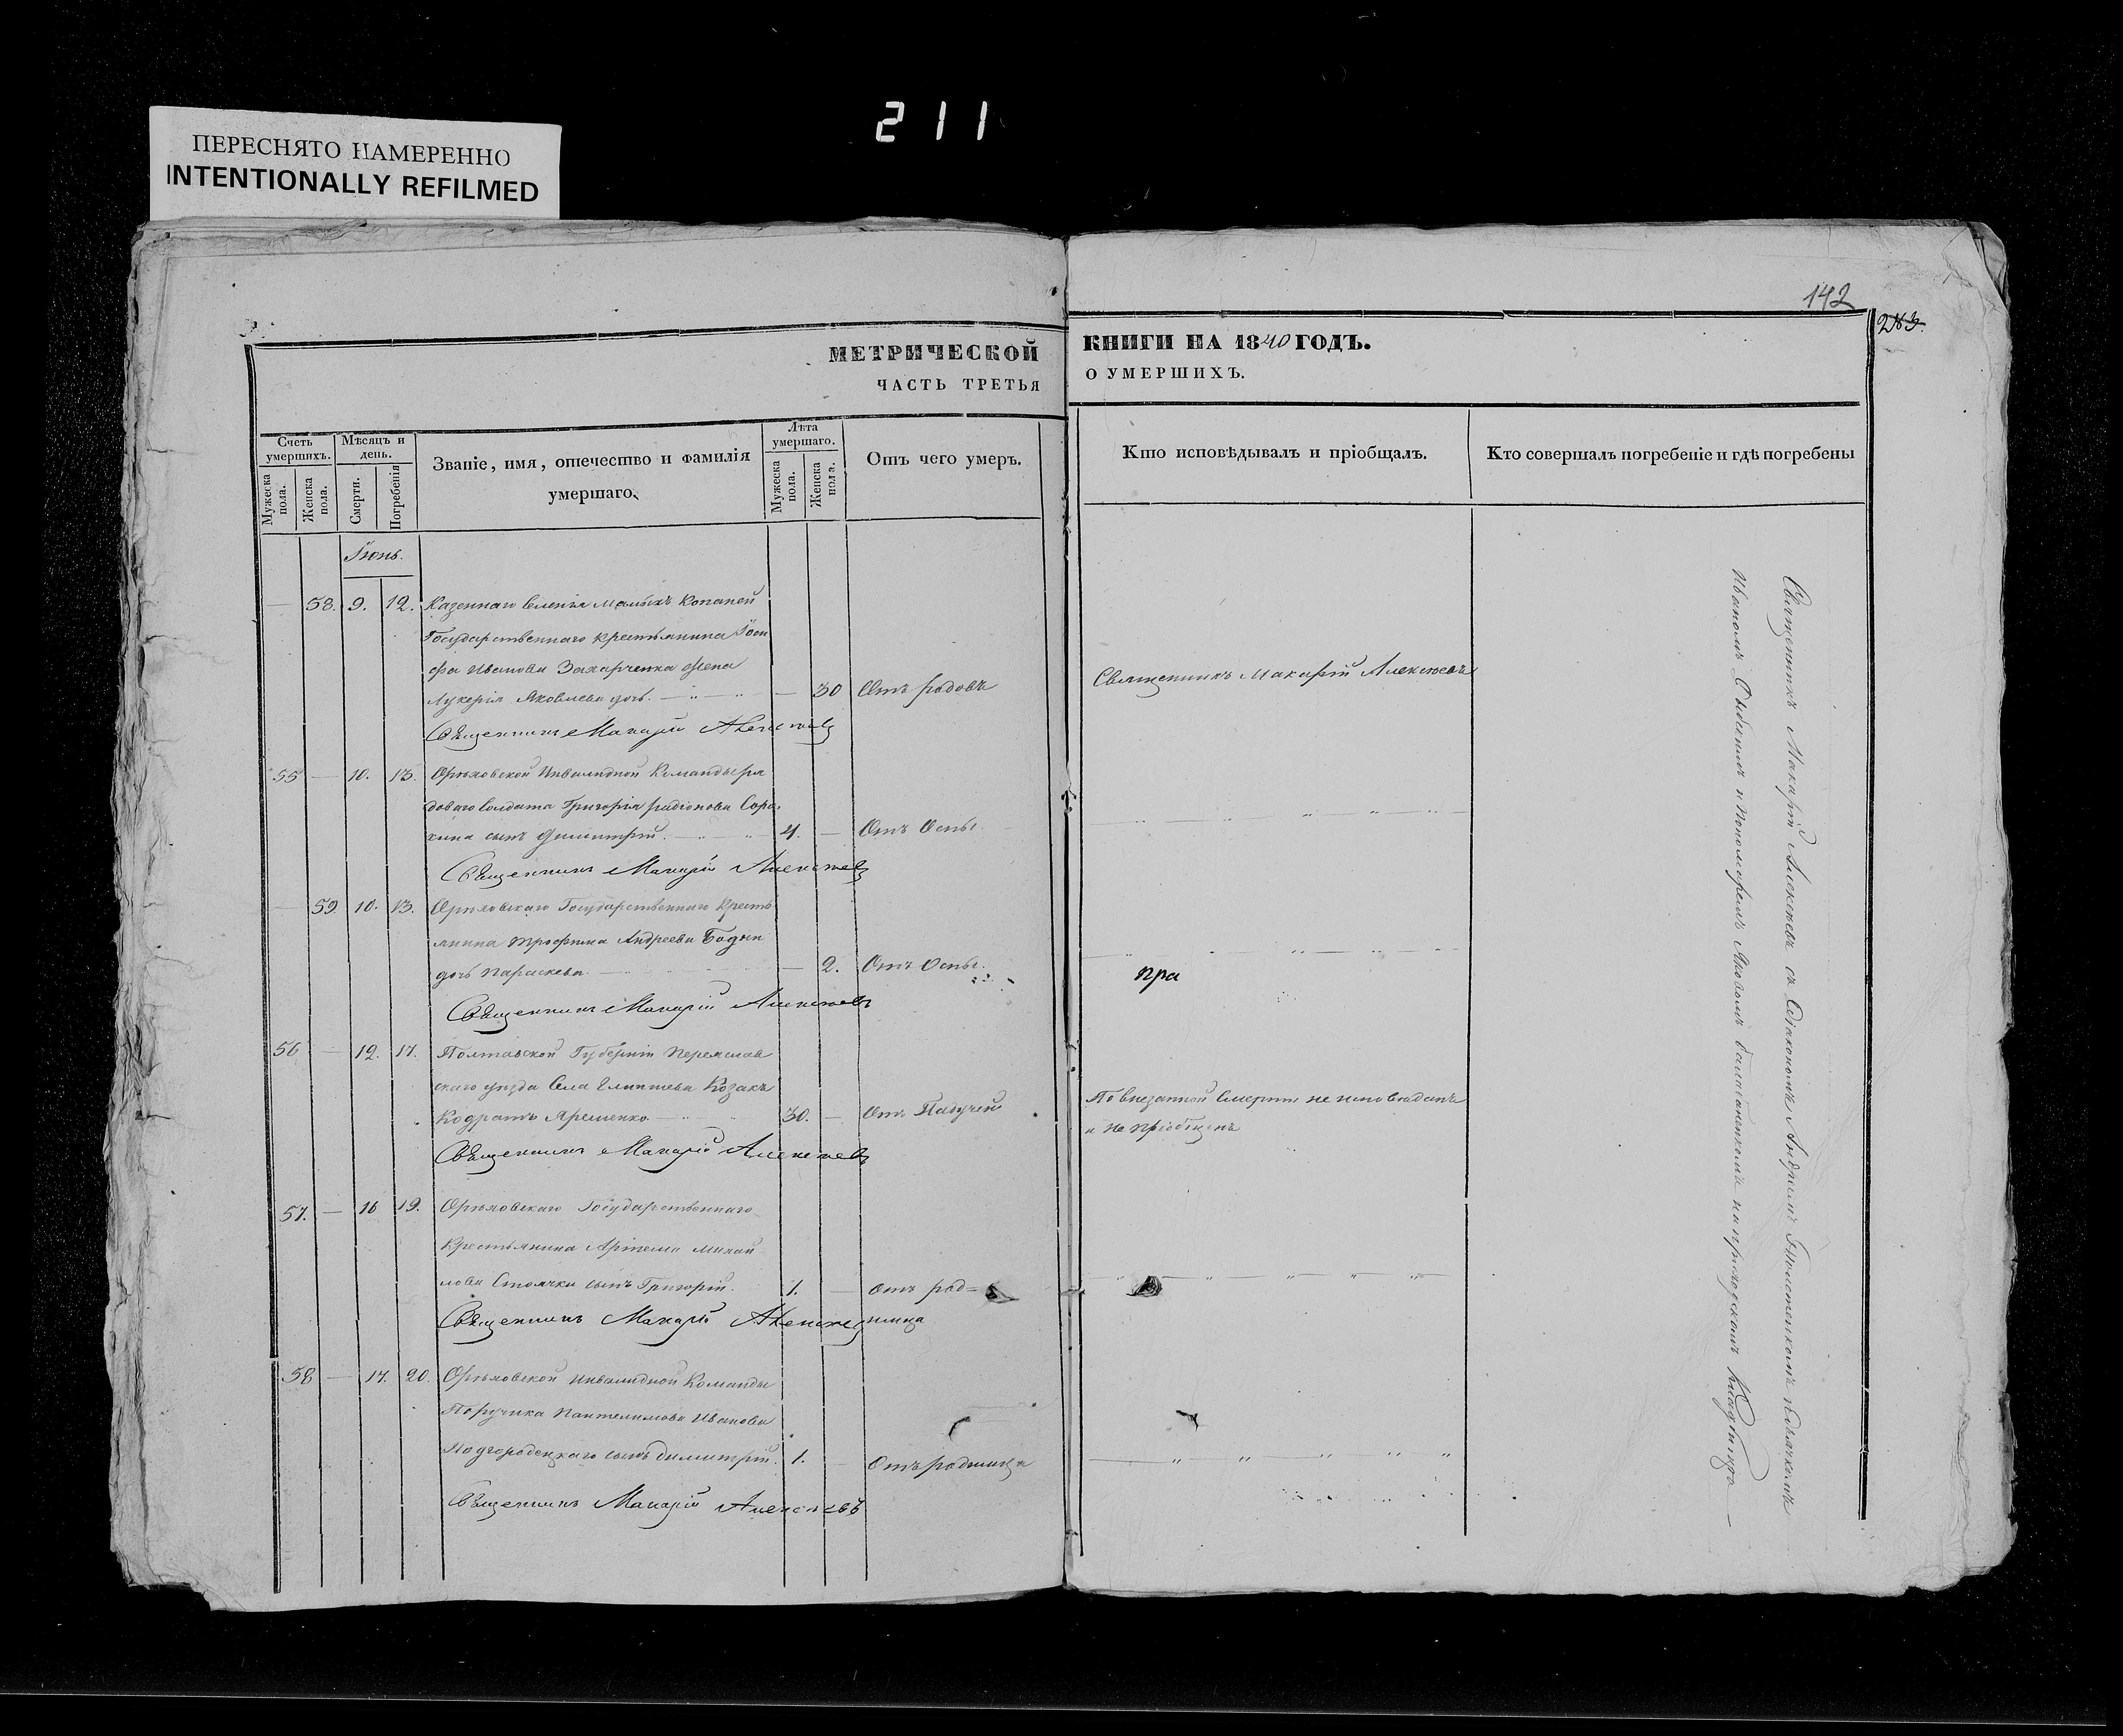 211
ПЕРЕСНЯТО НАМЕРЕННО
INTENTIONALLY REFILMED
142
МЕТРИЧЕСКОЙ
ЧАСТЬ ТРЕТЬЯ
Счетъ умершихъ.
Мужеска пола.
Женска пола.
Мѣсяцъ и день.
Смерти.
Погребенія
Званіе, имя, отечество и фамилія
умершаго.
Лѣта умершаго.
Мужеска пола.
Женска пола.
Отъ чего умеръ.
Іюнь.
58. 9. 12. Казеннаго Селенія Малыхъ Копаней
Государственнаго крестьянина Іоси
фа Иванова Захарченка жена
Лукерія Яковлева дочь. 30 Отъ родовъ
Священникъ Макарій Алексѣевъ
55 10. 13. Орѣховской Инвалидной Команды ря
доваго Солдата Григорія Радіонова Соро
кина сынъ Димитрій. 4. Отъ Оспы.
Священникъ Макарій Алексѣевъ
59. 10. 13. Орѣховскаго Государственнаго Кресть
янина Трофима Андреева
дочь Параскева. 2. Отъ Оспы.
Священникъ Макарій Алексѣевъ
56 12. 17. Полтавской Губерніи Переяслав
скаго уѣзда Села Козакъ
Кодратъ Яременко 30. Отъ Падучей
Священникъ Макарій Алексѣевъ
57. 16 19. Орѣховскаго Государственнаго
Крестьянина Артема Михай
лова сынъ Григорій. 1. Отъ род=
Священникъ Макарій Алексѣевъ имца
58 17. 20. Орѣховской Инвалидной Команды
Поручика Пантелимова Иванова
Подгородецкаго сынъ Димитрій. 1. Отъ родимца
Священникъ Макарій Алексѣевъ
КНИГИ НА 1840 ГОДЪ.
О УМЕРШИХЪ.
Кто исповѣдывалъ и пріобщалъ.
Кто совершалъ погребеніе и гдѣ погребены
Священникъ Макарій Алексѣевъ
пра
По внезапной Смерти не исповѣданъ
и не пріобщенъ
Священникъ Макарій Алексѣевъ съ Діакономъ Андреемъ
Иваномъ и Пономаремъ Яковомъ на приходскомъ Кладбищѣ